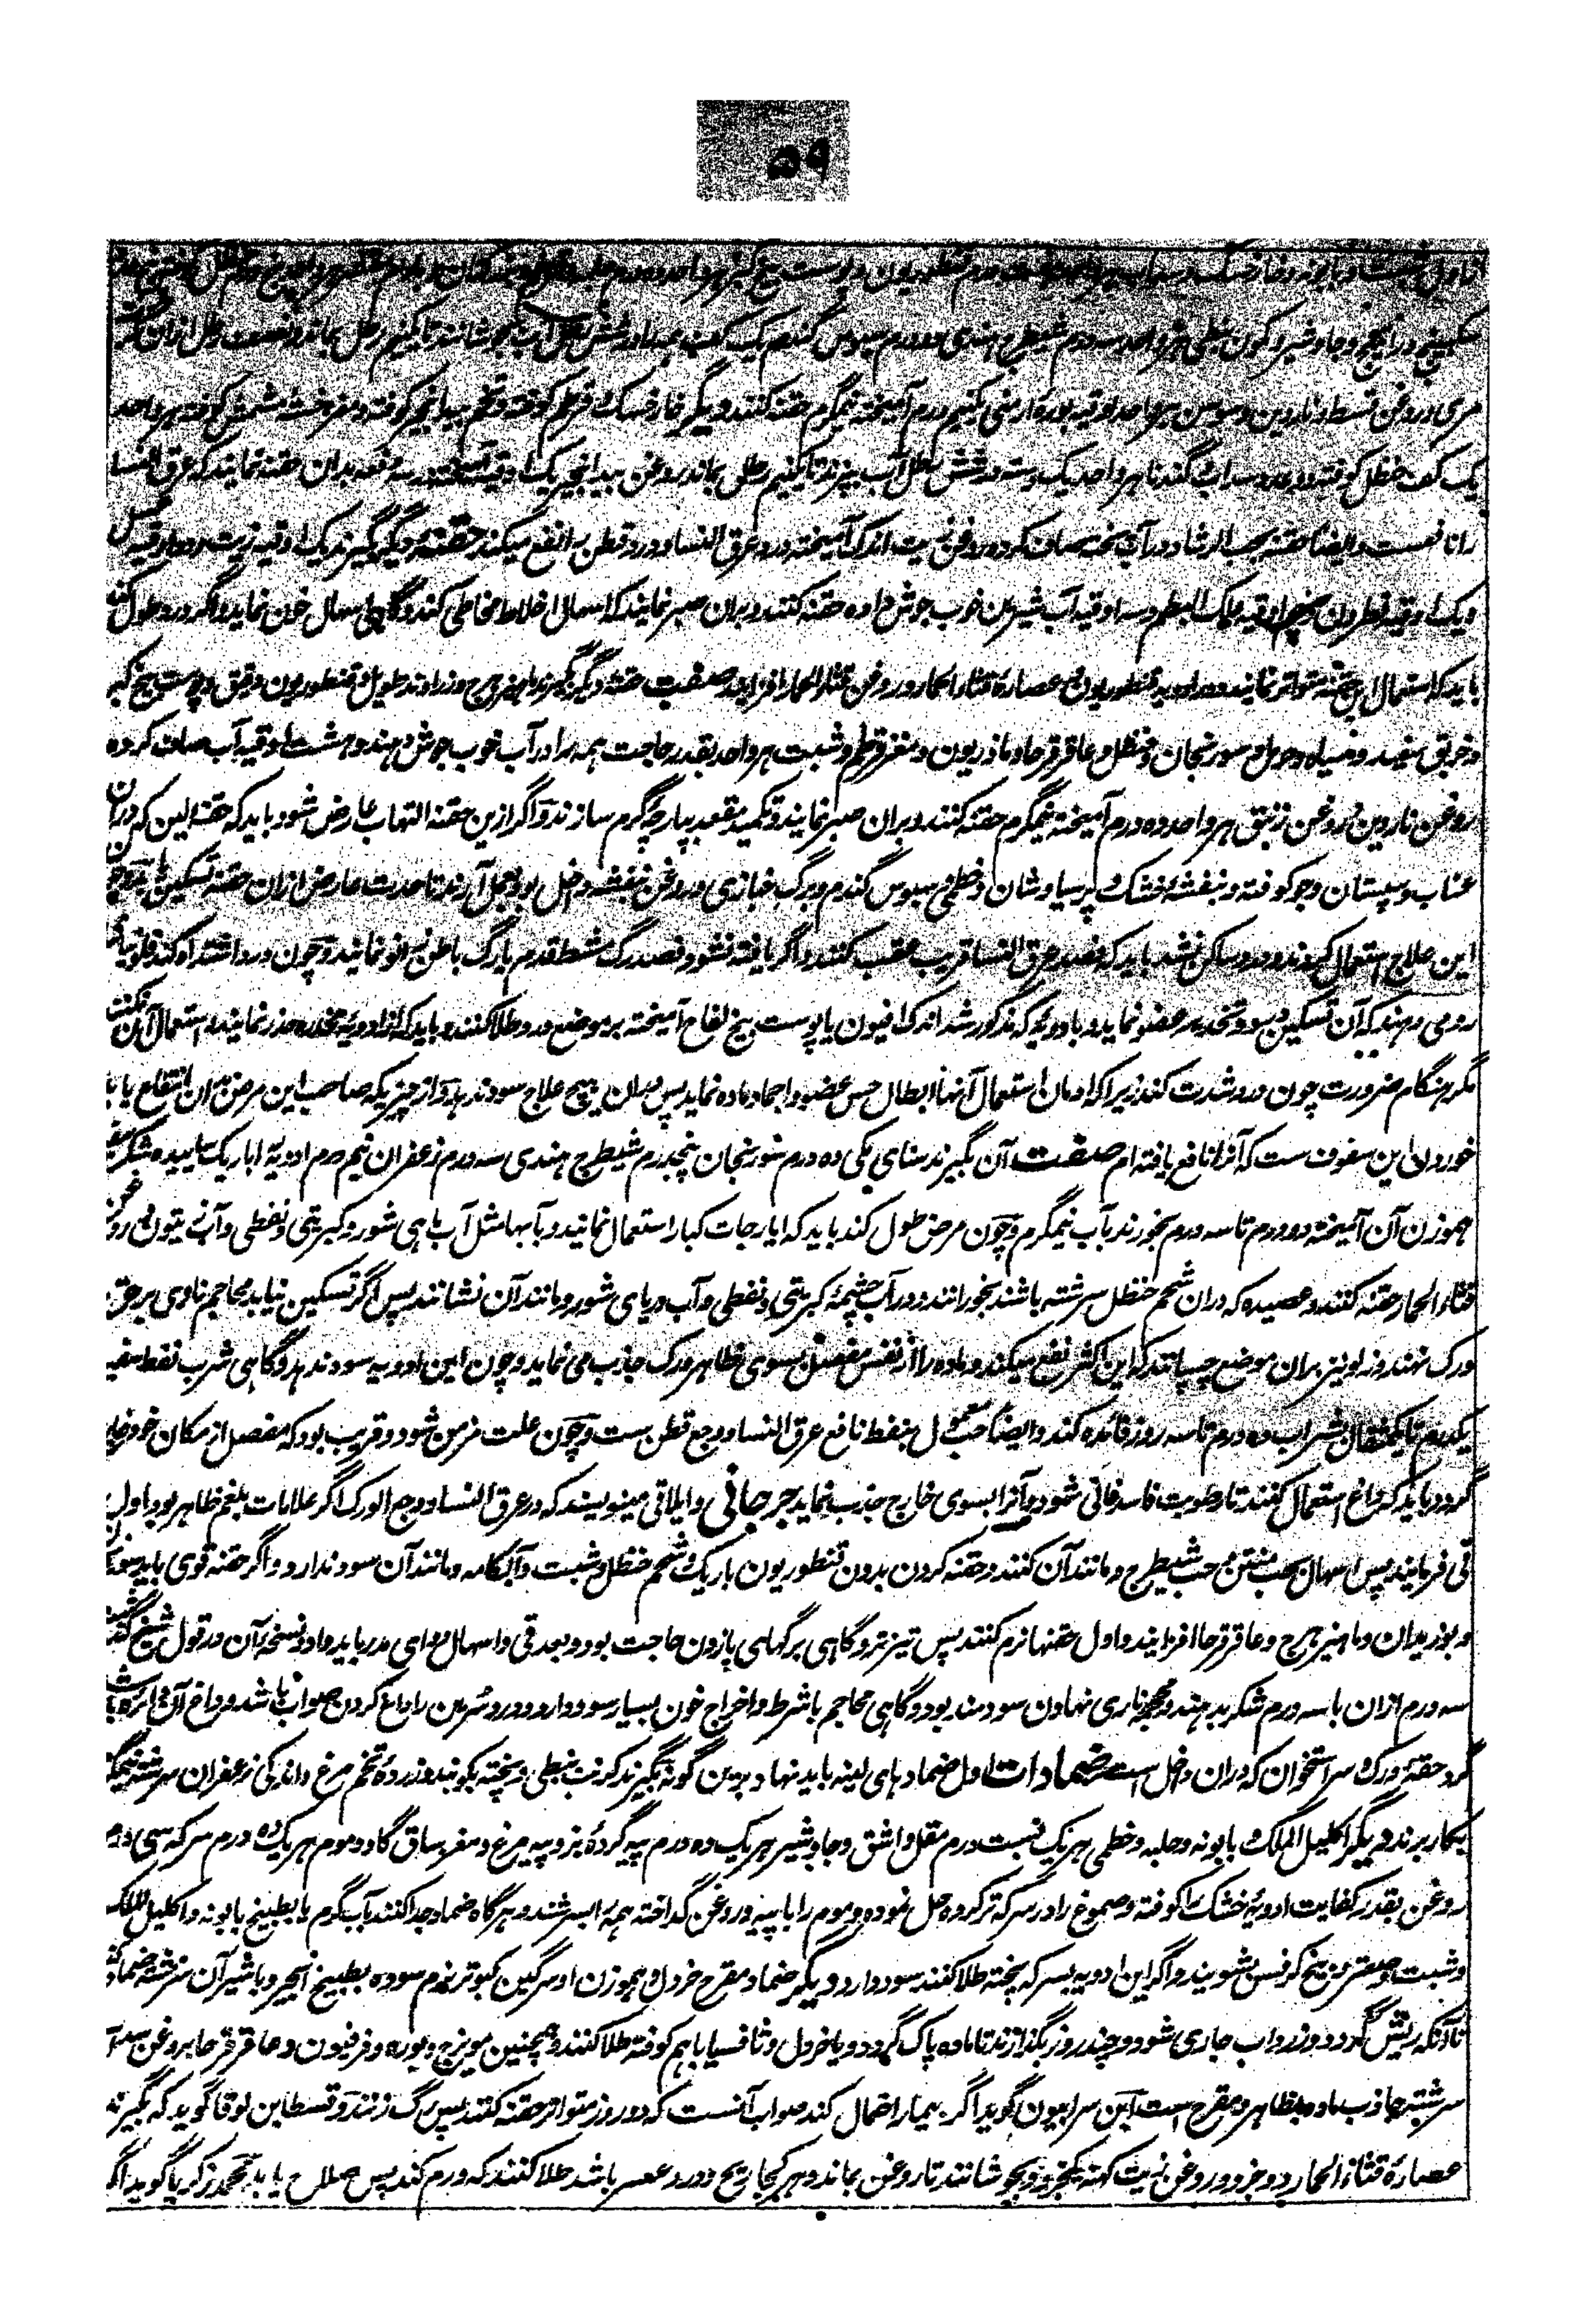 ۵۹
سکبینج و جاوشیر و کمون نبطی هر واحد سه درم شیطرج هندی دو درم سبوس گندم یک کف همه را در شش رطل آب بجوشانند تا یکنیم رطل بماند و نصف رطل ازان
مری و روغن قسط و ناردین و سوسن هر واحد اوقیه بوره ارمنی یکنیم درم آمیخته نیمگرم حقنه کنند دیگر خارخسک قرطم کوفته و تخم بیدانجیر کوفته و هر واحد
یک کف حنظل کوفته دو عدد سداب گندنا هر واحد یک دسته در شش رطل آب بپزند تا یکنیم رطل بماند روغن بیدانجیر یک اوقیه آمیخته سه دفعه بدان حقنه نمایند که عرق النسا
را نافعست و ایضا حقنه بحب الرشاد در آب پخته صاف کرده روغن زیت اندک آمیخته درد عرق النسا و درد قطن را نفع میکند حقنه دیگر بگیرند یک اوقیه زیت
و یک اوقیه قطران پنج اوقیه علک البطم و سه اوقیه آب شیرین خوب جوش داده حقنه کنند و بران صبر نمایند که اسهال اخلاط مخاطی کند و گاهی اسهال خون نماید و اگر درد طول کند
باید که استعمال این حقنه متواتر نمایند و در ادویه قنطوریون و عصاره قثاء الحمار و روغن قثاء الحمار افزایند صفت حقنه دیگر بگیرند ماهیزهرج و زراوند طویل و قنطوریون دقیق و پوست بیخ کبر
و خربق سفید و سیاه و حرمل و سورنجان و حنظل و عاقرقرحا و مازریون و مغز قرطم و شبت هر واحد بقدر حاجت همه را در آب خوب جوش دهند و هشت اوقیه آب صاف کرده
روغن ناردین و روغن زنبق هر واحد ده درم آمیخته نیمگرم حقنه کنند و بران صبر نمایند و تکمید مقعد بپارچه گرم سازند و اگر ازین حقنه التهاب عارض شود باید که حقنه لین که دران
عناب و سپستان و جو کوفته و بنفشه خشک پرسیاوشان و خطمی سبوس گندم و برگ خبازی و روغن بنفشه داخل بود بعمل آرند تا حدت عارض ازان حقنه تسکین یابد و چون
این علاج استعمال کردند و درد ساکن نشد باید که فصد عرق النسا قریب عقب کنند و اگر یافته نشود فصد رگ مشط قدم یا رگ باطن زانو نمایند و چون درد اشتداد کند فلونیا
رومی دهند که آن تسکین دهد و تخدیر عضو نماید و با دویه که مذکور شد اندک افیون یا پوست بیخ لفاح آمیخته بر موضع درد طلا کنند و باید که از ادویه مخدره حذر نمایند و استعمال آن نکنند
مگر هنگام ضرورت چون درد شدت کند زیرا که ادمان استعمال آنها ابطال حس عضو و اجماد ماده نماید پس دران هیچ علاج سود ندهد و از چیزیکه صاحب این مرض بدان انتفاع یابد
خوردن این سفوف ست که آنرا نافع یافته ام صفت آن بگیرند سنای مکی ده درم سورنجان پنجدرم شیطرج هندی سه درم زعفران نیم درم ادویه را باریک ساییده شکر سفید
هموزن آن آمیخته دو درم تا سه درم بخورند بآب نیمگرم و چون مرض طول کند باید که ایارجات کبار استعمال نمایند و بآبها مثل آب ماهی شور و کبریتی و نفطی و آب زیتون و روغن
قثاء الحمار حقنه کنند و عصیده که دران شحم حنظل سرشته باشند بخورانند و در آب چشمه کبریتی و نفطی و آب دریای شور و مانند آن نشانند پس اگر تسکین نیابد محاجم ناری بر حق
ورک نهند و زلو نیز بران موضع چسپانند که این اکثر نفع میکند و ماده را از نفس مفصل بسوی ظاهر ورک جذب می نماید و چون این ادویه سود ندهد و گاهی شرب نفط سفید
یکدرم تا یکمثقال بشراب ده درم تا سه روز فائده کند و ایضا حب معمول بنفط نافع عرق النسا و وجع قطن ست و چون علت مزمن شود و قریب بود که مفصل از مکان خود خارج
گردد باید که داغ استعمال کنند تا رطوبت فاسد فانی شود و آنرا بسوی خارج جذب نماید جرجانی و ایلاقی مینویسند که در عرق النسا و وجع الورک اگر علامات بلغم ظاهر بود اول
قی فرمایند پس اسهال بحب منتن و حب شیطرج و مانند آن کنند و حقنه کردن بدون قنطوریون باریک و شحم حنظل و شبت و آبکامه و مانند آن سود ندارد و اگر حقنه قوی باید سورنجان
و بوزیدان و ماهیزهرج و عاقرقرحا افزایند و اول حقنها نرم کنند پس تیزتر و گاهی برگهای پا زدن حاجت بود و بعد قی و اسهال دوای مدر باید داد و نسخه آن در قول شیخ گذشت
سه درم ازان با سه درم شکر بدهند و محجمه ناری نهادن سودمند بود و گاهی محاجم با شرط و اخراج خون بسیار سود دارد و درد سرین را داغ کردن صواب باشد و داغ آن دائره باشد
گرد حقه ورک و سر استخوان که دران داخل است ضمادات اول ضمادهای لینه باید نهاد و بدین گونه بگیرند کرنب نبطی و پخته بکوبند و زرده تخم مرغ و اندکی زعفران سرشته نیمگرم
بکار برند دیگر اکلیل الملک و بابونه و حلبه و خطمی هر یک بست درم مقل و اشق و جاوشیر هر یک ده درم پیه گرده بز و پیه مرغ و مغز ساق گاو و موم هر یک ده درم سرکه سی درم
روغن بقدر کفایت ادویه خشک را کوفته و صموغ را در سرکه تر کرده حل نموده و موم را با پیه و روغن گداخته همه را بسرشند و هرگاه ضماد جدا کنند بآب گرم یا بطبیخ بابونه و اکلیل الملک
و شبت و صعتر و بیخ کرفس بشویند و اگر این ادویه بسرکه پخته طلا کنند سود دارد دیگر ضماد مقرح خردل و هموزن او سرگین کبوتر نرم سوده بطبیخ انجیر و با شیر آن سرشته ضماد کنند
تا آنکه ریش گردد و زرداب جاری شود و چند روز بگذارند تا ماده پاک گردد و یا خردل و ثافسیا باهم کوفته طلا کنند و همچنین مویزج و بوره و فرفیون و عاقرقرحا بروغن
سرشته جاذب ماده بظاهر و مقرح است ابن سرابیون گوید اگر بیمار احتمال کند صواب آنست که دو روز متواتر حقنه کنند پس رگ زنند و قسطا بن لوقا گوید که بگیرند
عصاره قثاء الحمار دو جزو و روغن زیت کهنه یکجزو و بجوشانند تا روغن بماند و هر کجا ریح و درد عسر باشد طلا کنند که ورم کند پس صلاح یابد محمد زکریا گوید اگر